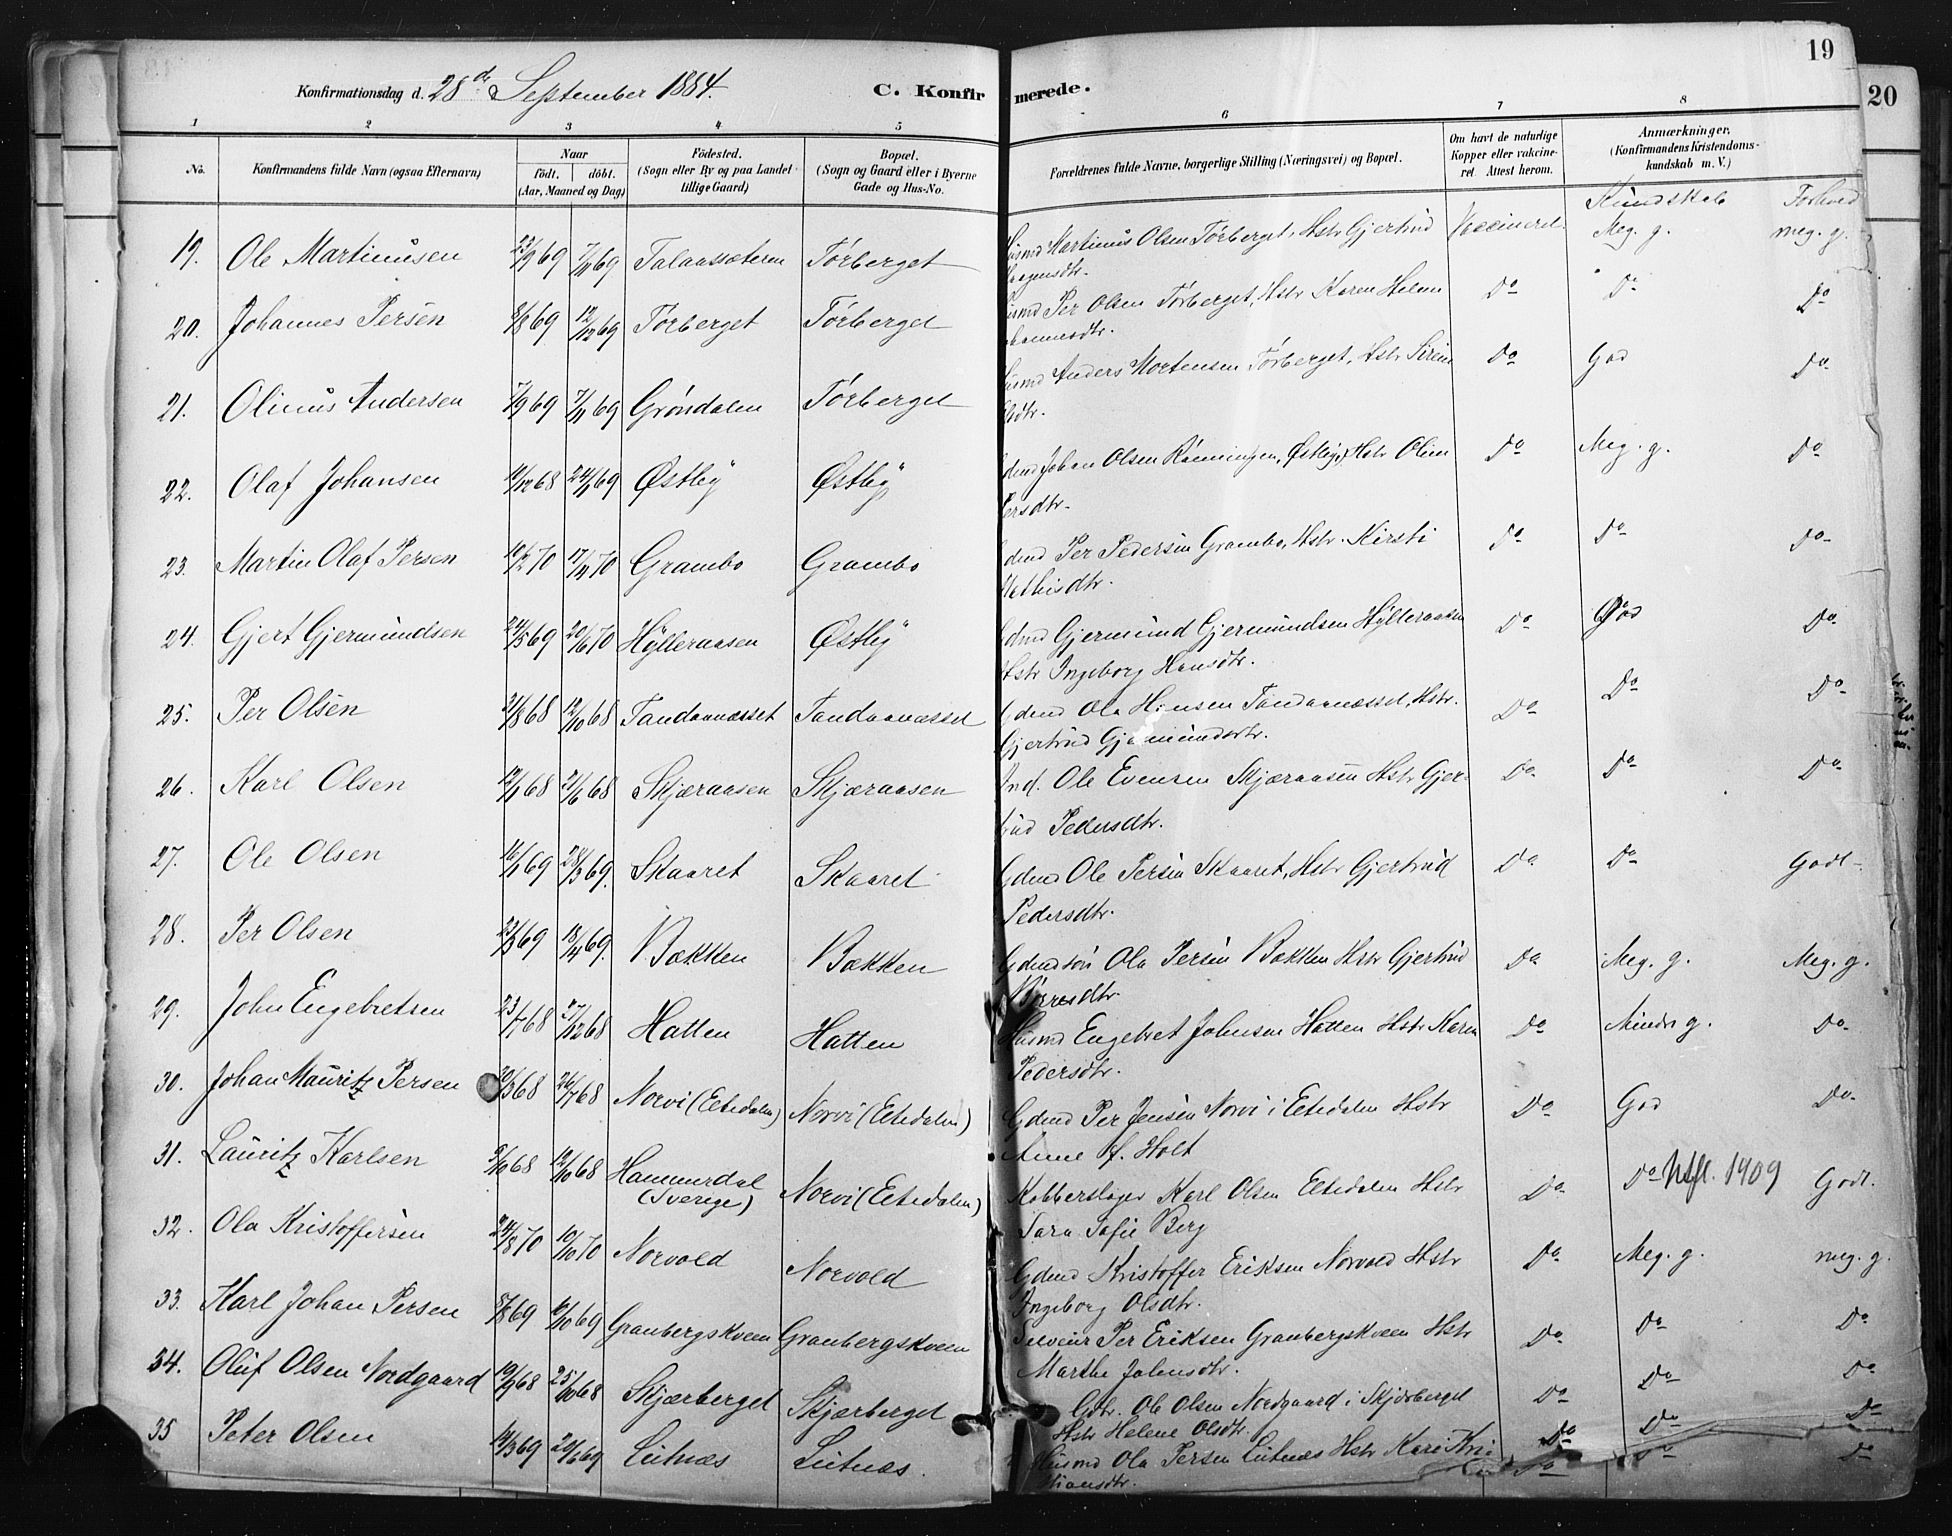 19
20
Konfirmationsdag d. 28de September 1884. C. Konfirmerede.
1 2 3 4 5 6 7 8
No. Konfirmandens fulde Navn (ogsaa Efternavn) Naar födt. döbt. (Aar, Maaned og Dag) Födested. (Sogn eller By og paa Landet tillige Gaard) Bopæl. (Sogn og Gaard eller i Byerne Gade og Hus-No. Forældrenes fulde Navne, borgerlige Stilling (Næringsvei) og Bopæl. Om havt de naturlige Kopper eller vakcineret. Attest herom. Anmærkninger. (Konfirmandens Kristendomskundskab m. V.)
Kundskab Forhold
19. Ole Martinusen 23/9 69 7/11 69 Talaassæteren Törberget Husmd Martinus Olsen Törberget, Hstr Gjertrud Vaccineret Meg. g. meg. g.
Haagensdtr.
20. Johannes Persen 8/8 69 12/12 69 Törberget Törberget Husmd Per Olsen Törberget, Hstr Karen Helene Do Do Do
Johannesdtr.
21. Olinus Andersen 7/9 69 7/11 69 Gröndalen Törberget Husmd Anders Mortensen Törberget, Hstr Sirene Do God Do
Olsdtr.
22. Olaf Johansen 11/12 68 24/1 69 Østby Østby Gdmd Johan Olsen Rönningen, Østby, Hstr Oline Do Meg. g. Do
Persdtr.
23. Martin Olaf Persen 10/2 70 17/4 70 Grambo Grambo Gdmd Per Pedersen Grambo, Hstr. Kirsti Do Do Do
Mathisdtr.
24. Gjert Gjermundsen 24/5 69 20/6 70 Hylleraasen Østby Gdmd Gjermund Gjermundsen Hylleraasen Do God Do
Hstr Ingeborg Hansdtr.
25. Per Olsen 21/8 68 12/10 68 Tandaanæsset Tandaanæsset Gdmd Ola Hansen Tandaanæsset, Hstr. Do Do Do
Gjertrud Gjermundsdtr.
26. Karl Olsen 12/1 68 21/6 68 Skjæraasen Skjæraasen Ind. Ole Evensen Skjæraasen Hstr Gjer- Do Do Do
trud Pedersdtr.
27. Ole Olsen 16/1 69 28/3 69. Skaaret Skaaret Gdmd Ole Persen Skaaret, Hstr Gjertrud Do Do Godt
Pedersdtr.
28. Per Olsen 23/3 69 18/4 69. Bækken Bækken Gdmdsön Ola Persen Bækken Hstr Gjertrud Do Meg. g. Meg. g.
29. John Engebretsen 23/7 68 27/12 68 Hatten Hatten Husmd Engebret Johnsen Hatten Hstr Karen Do Mindre g. Do
Pedersdtr.
30. Johan Mauritz Persen 20/3 68 26/7 68 Norvi (Eltedalen) Norvi (Eltedalen) Gdmd Per Jensen Norvi i Eltedalen Hstr Do God Do
Anne f. Holt
31. Lauritz Karlsen 2/10 68 12/10 68 Hammerdal (Sverige) Norvi (Eltedalen) Kobberslager Karl Olsen Eltedalen Hstr Do Do Utfl. 1909 Godt.
Sara Sofie Berg
32. Ola Kristoffersen 24/8 70 10/10 70 Norvold Norvold Gdmd Kristoffer Eriksen Norvold Hstr Do Meg. g. meg. g.
Ingeborg Olsdtr.
33. Karl Johan Persen 8/8 69 10/10 69 Granbergskveen Granbergskveen Selveier Per Eriksen Granbergskveen Hstr Do Do Do
Marthe Johnsdtr.
34. Oluf Olsen Nordgaard 19/9 68 25/10 68 Skjærberget Skjærberget Gdbr. Ole Olsen Nordgaard i Skjærberget Do Do Do
Hstr Helene Olsdtr.
35 Peter Olsen 14/3 69 20/6 69 Lutnæs Lutnæs. Husmd Ola Persen Lutnæs Hstr Kari Kri- Do Do Do
stiansdtr. Do Do Do